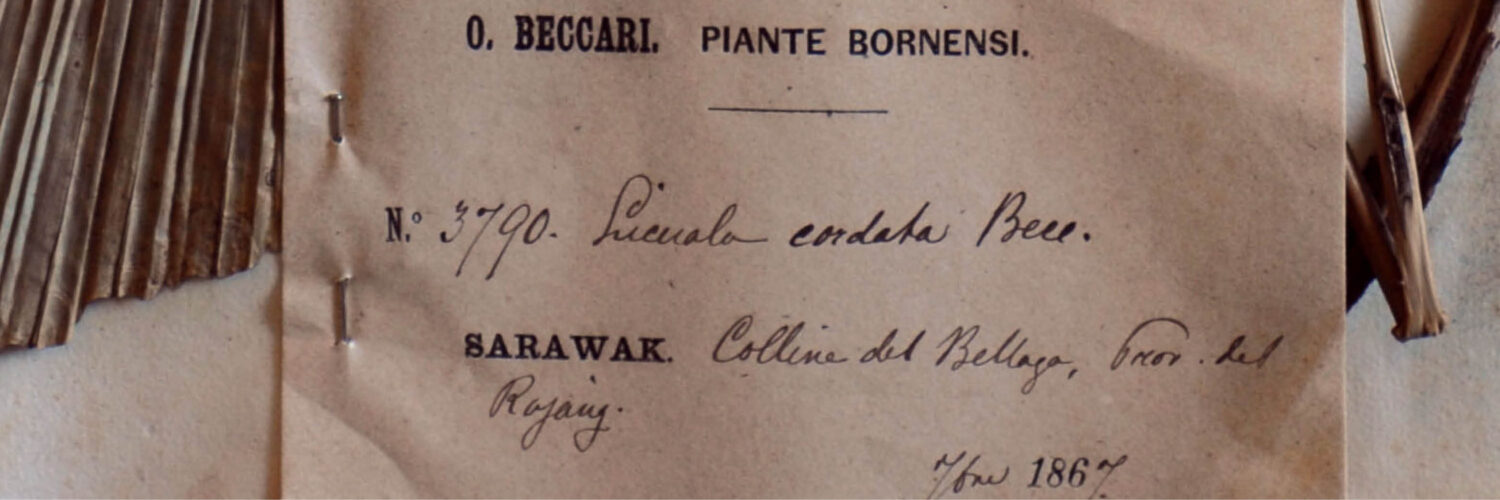 O. BECCARI. PIANTE BORNENSI.
N.º 3790. Licuala cordata Becc.
SARAWAK. Colline del Bellaga, Prov. del
Rajang.
7bre 1867